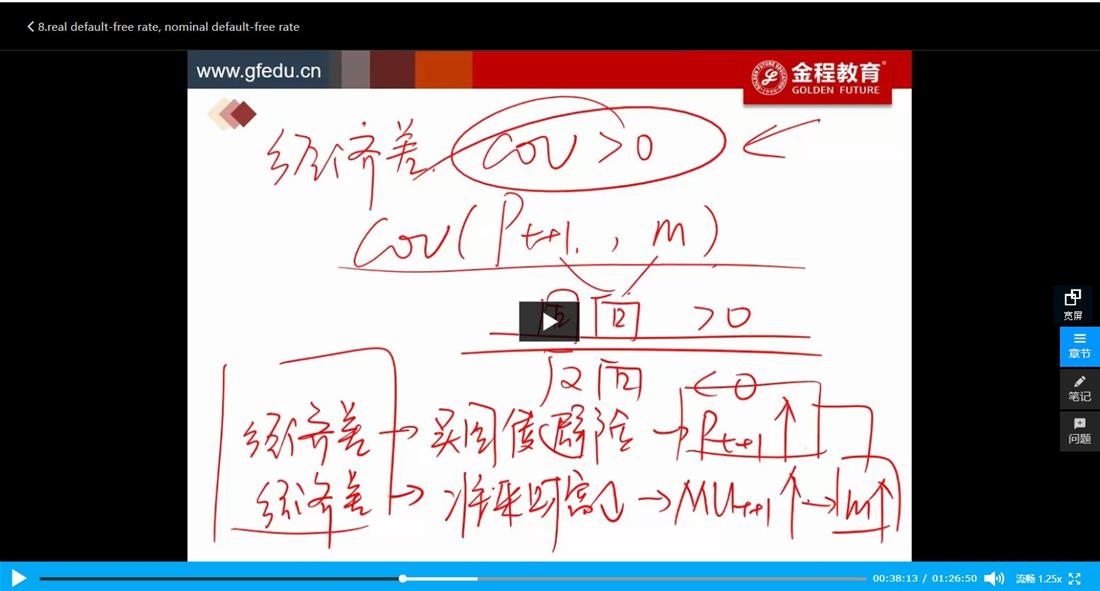 8.real default-free rate, nominal default-free rate
www.gfedu.cn
金程教育
GOLDEN FUTURE
经济差 COV > 0 ←
COV(Pt+1, m)
同 同 > 0
反 向 < 0
经济差 → 买国债避险 → Pt+1 ↑
经济差 → 将来财富↓ → MUt+1 ↑ → m↑
宽屏
章节
笔记
问题
00:38:13 / 01:26:50
流畅 1.25x